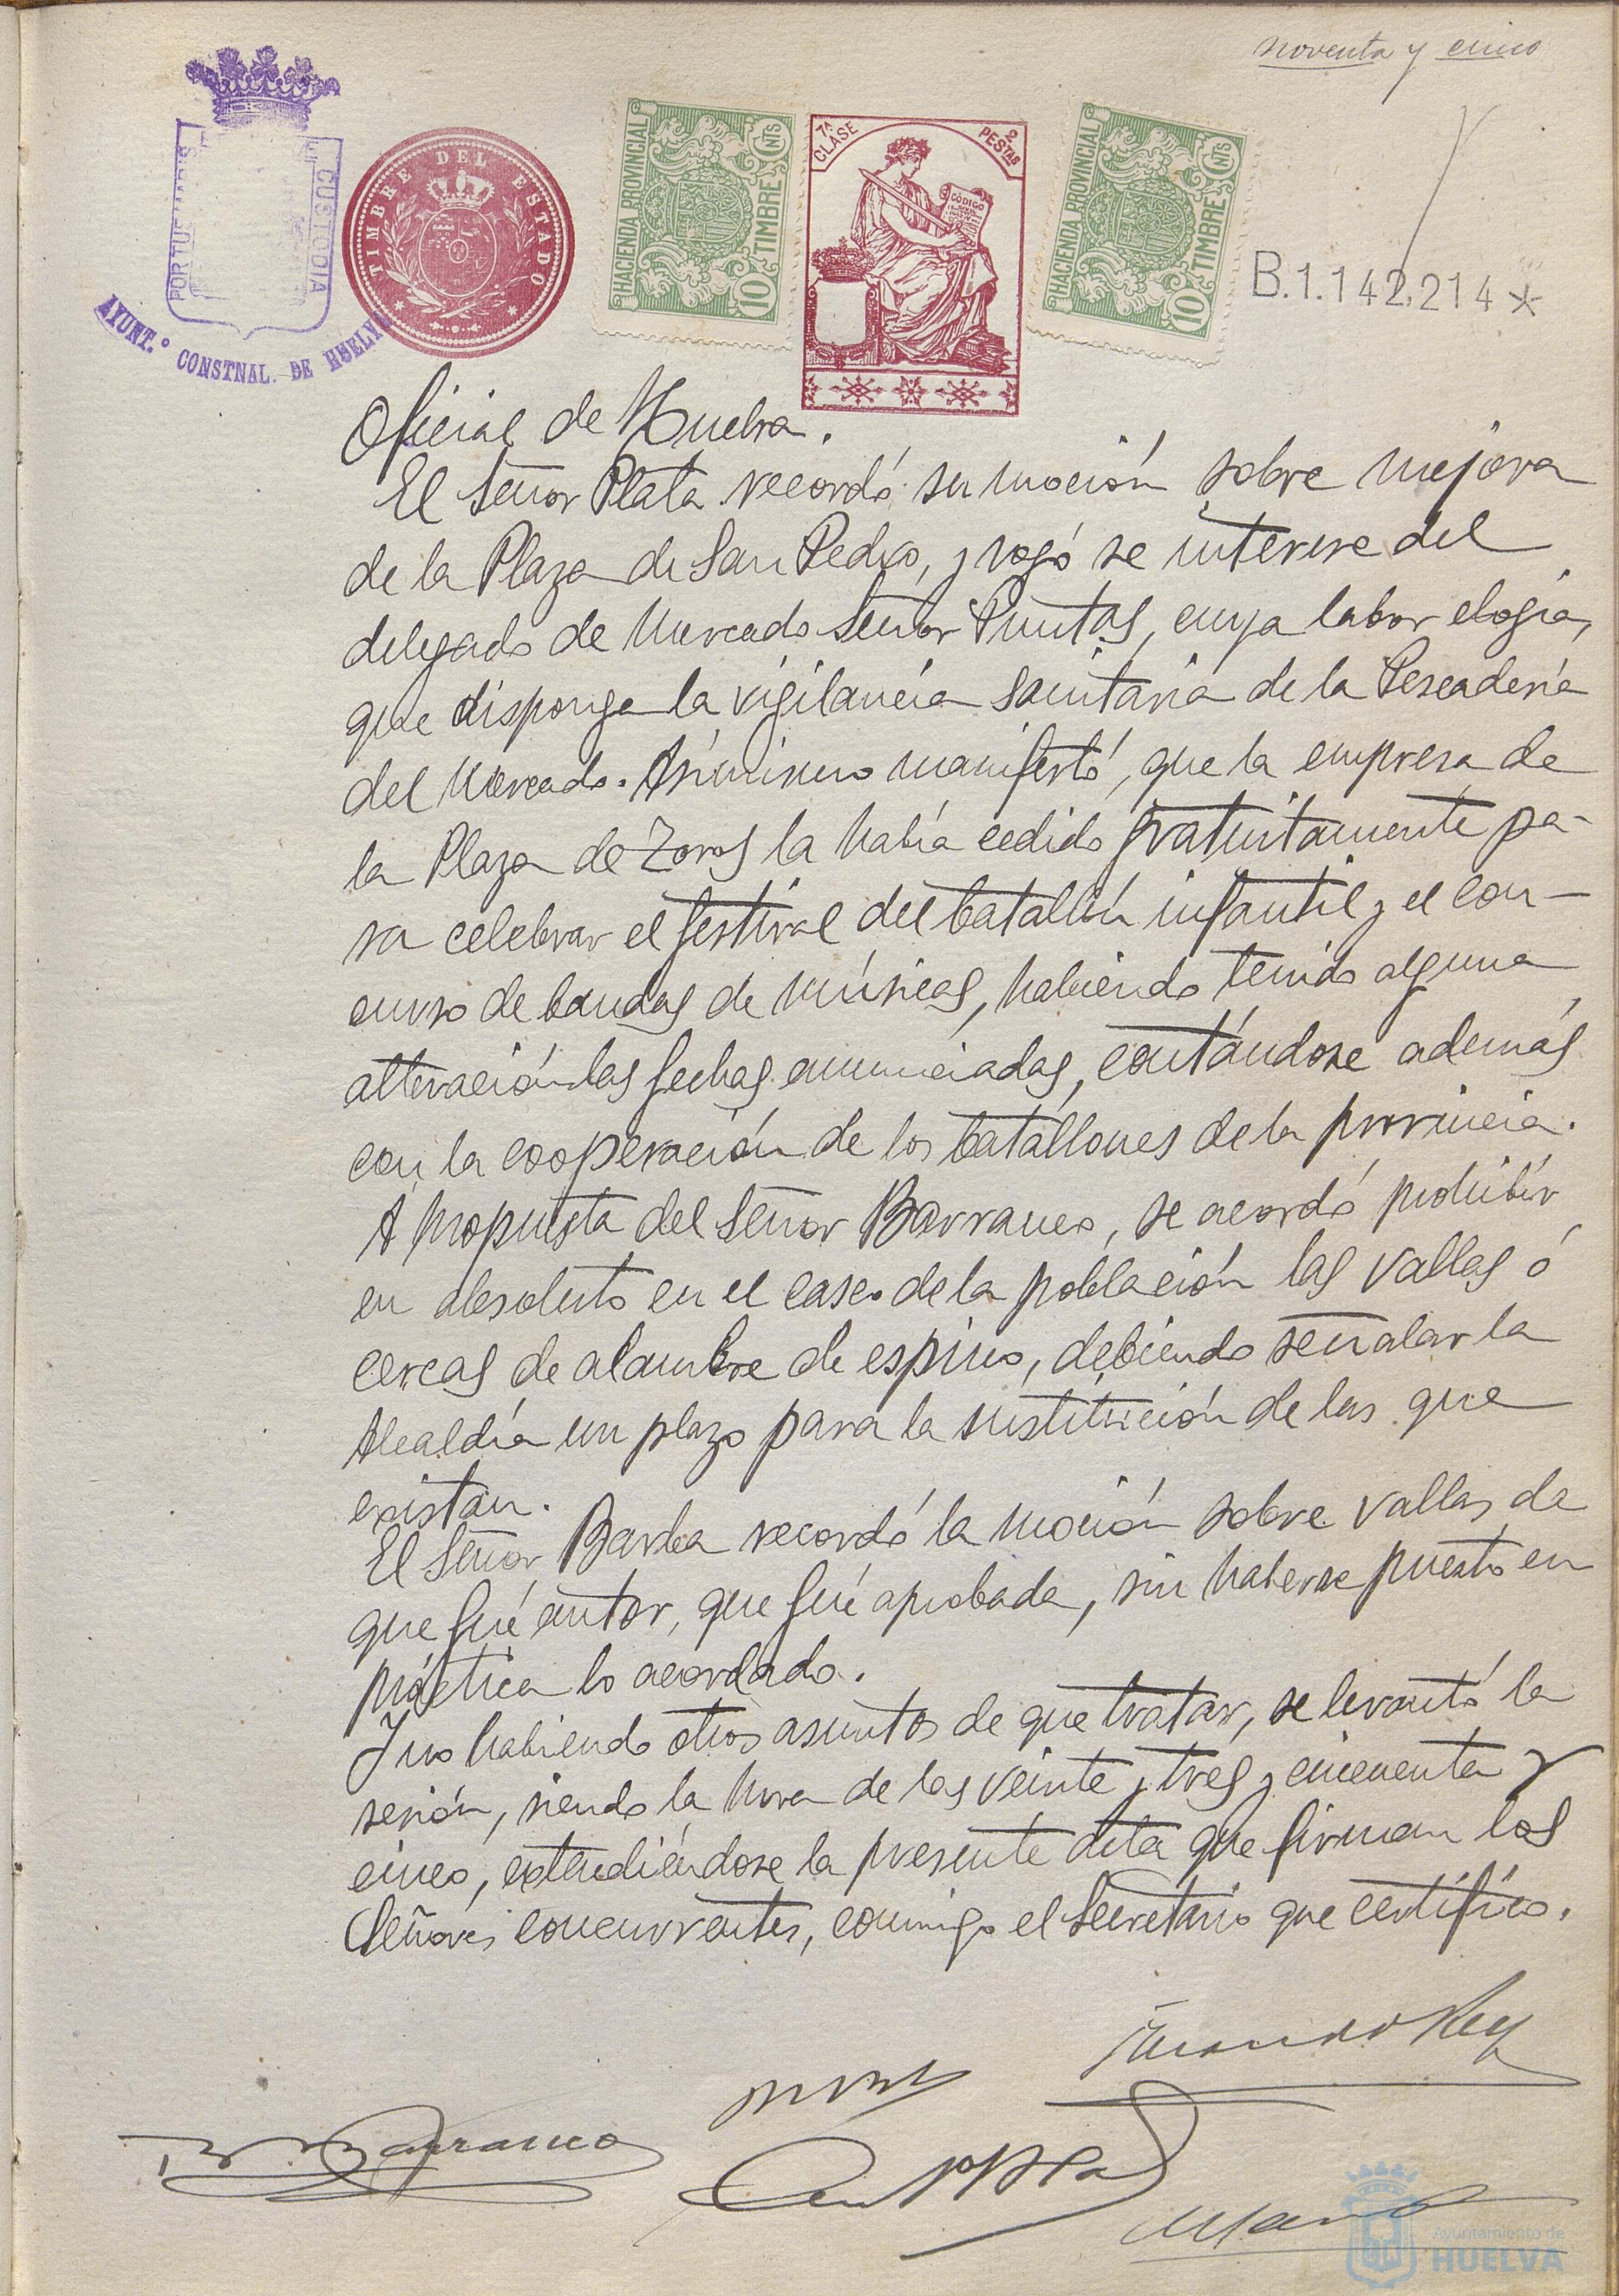 noventa y cinco
PORTUS MARIS
ET CUSTODIA
AYUNT.º CONSTNAL. DE HUELVA
TIMBRE DEL ESTADO
HACIENDA PROVINCIAL
10 CNTS
TIMBRE
7ª CLASE
2 PESTAS
CÓDIGO
HACIENDA PROVINCIAL
10 CNTS
TIMBRE
B.1.142,214*
Oficial de Huelva.
El Señor Plata recordó su moción sobre mejora
de la Plaza de San Pedro, y rogó se interese del
delegado de Mercado Señor Puntas, cuya labor elogia,
que disponga la vigilancia sanitaria de la Pescadería
del Mercado. Asímismo manifestó, que la empresa de
la Plaza de Toros la había cedido gratuitamente pa-
ra celebrar el festival del batallón infantil y el con-
curso de bandas de músicas, habiendo tenido alguna
alteración las fechas anunciadas, contándose además
con la cooperación de los batallones de la provincia.
A propuesta del Señor Barranco, se acordó prohibir
en absoluto en el casco de la población las vallas ó
cercas de alambre de espino, debiendo señalar la
Alcaldía un plazo para la sustitución de las que
existan.
El Señor Barba recordó la moción sobre vallas de
que fué autor, que fué aprobada, sin haberse puesto en
práctica lo acordado.
Y no habiendo otros asuntos de que tratar, se levantó la
sesión, siendo la hora de las veinte y tres y cincuenta y
cinco, extendiéndose la presente acta que firman los
Señores concurrentes, conmigo el Secretario que certifico.
Barranco
Ayuntamiento de
HUELVA